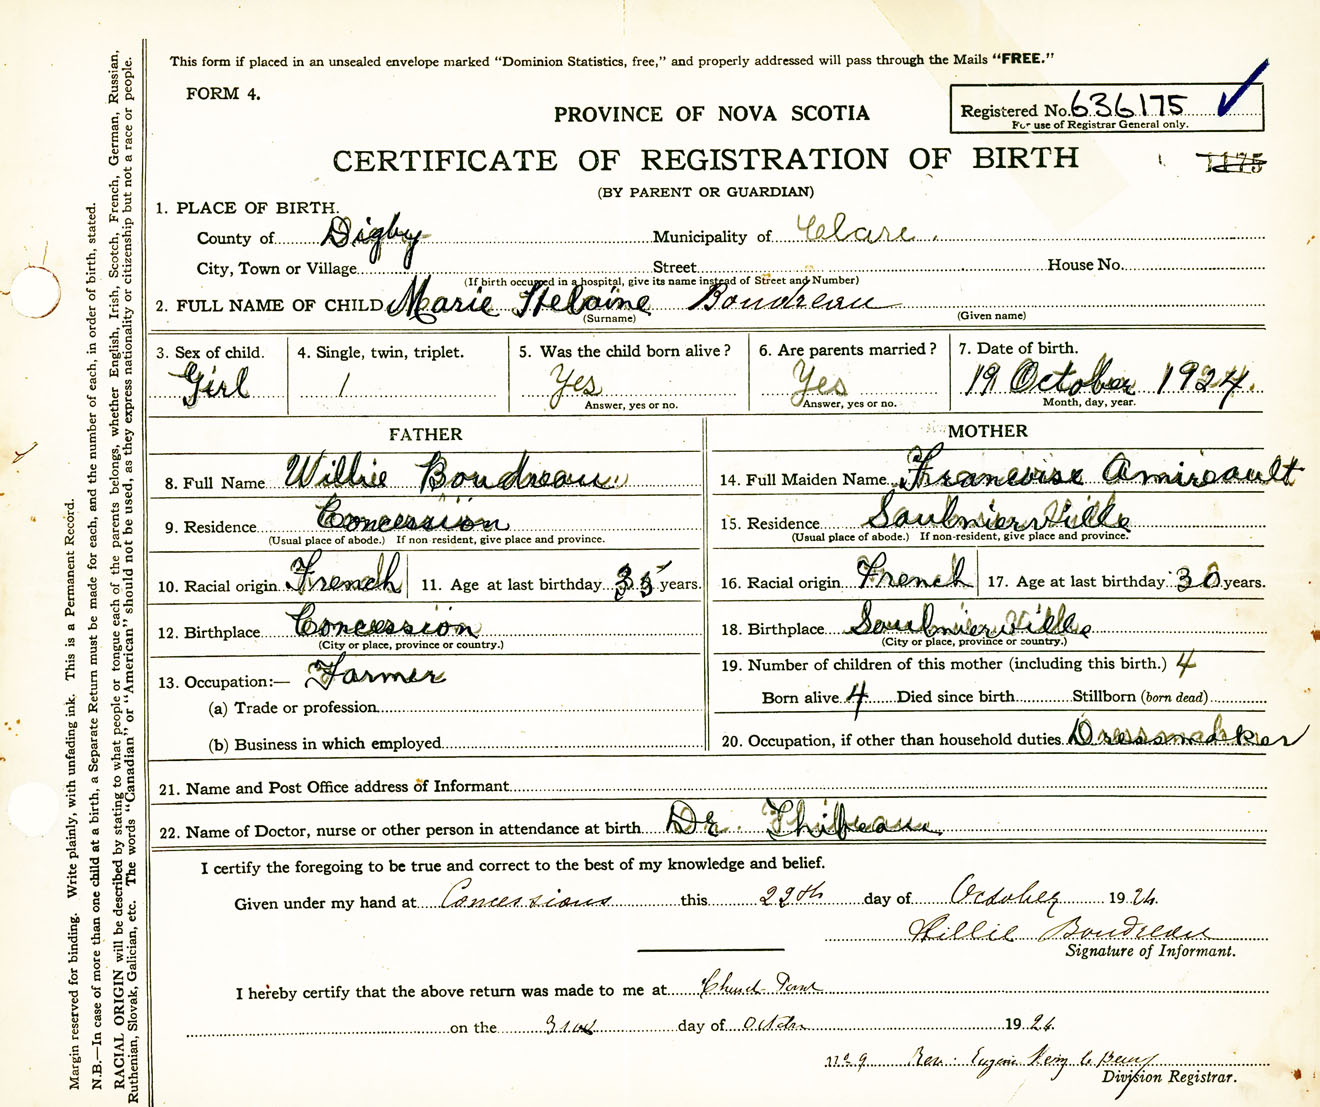 This form if placed in an unsealed envelope marked "Dominion Statistics, free," and properly addressed will pass through the Mails "FREE."
FORM 4.
PROVINCE OF NOVA SCOTIA
Registered No. 636175
For use of Registrar General only.
CERTIFICATE OF REGISTRATION OF BIRTH
1175
(BY PARENT OR GUARDIAN)
1. PLACE OF BIRTH.
County of Digby Municipality of Clare.
City, Town or Village Street House No.
(If birth occurred in a hospital, give its name instead of Street and Number)
2. FULL NAME OF CHILD Marie Helaine Boudreau
(Surname) (Given name)
3. Sex of child. 4. Single, twin, triplet. 5. Was the child born alive? 6. Are parents married? 7. Date of birth.
Girl 1 Yes Yes 19 October 1924.
Answer, yes or no. Answer, yes or no. Month, day, year.
FATHER MOTHER
8. Full Name Willie Boudreau 14. Full Maiden Name Francoise Amireault
9. Residence Concession 15. Residence Saulnierville
(Usual place of abode.) If non resident, give place and province. (Usual place of abode.) If non-resident, give place and province.
10. Racial origin French 11. Age at last birthday 35 years. 16. Racial origin French 17. Age at last birthday 30 years.
12. Birthplace Concession 18. Birthplace Saulnierville
(City or place, province or country.) (City or place, province or country.)
13. Occupation:— Farmer 19. Number of children of this mother (including this birth.) 4
(a) Trade or profession Born alive 4 Died since birth Stillborn (born dead)
(b) Business in which employed 20. Occupation, if other than household duties Dressmaker
21. Name and Post Office address of Informant
22. Name of Doctor, nurse or other person in attendance at birth Dr. Thibeau
I certify the foregoing to be true and correct to the best of my knowledge and belief.
Given under my hand at Concessions this 29th day of October 1924.
Willie Boudreau
Signature of Informant.
I hereby certify that the above return was made to me at Church Point
on the 31st day of Octobr 1924.
Rev. Eugene
Division Registrar.
Margin reserved for binding. Write plainly, with unfading ink. This is a Permanent Record.
N.B.—In case of more than one child at a birth, a Separate Return must be made for each, and the number of each, in order of birth, stated.
RACIAL ORIGIN will be described by stating to what people or tongue each of the parents belongs, whether English, Irish, Scotch, French, German, Russian,
Ruthenian, Slovak, Galician, etc. The words "Canadian" or "American" should not be used, as they express nationality or citizenship but not a race or people.